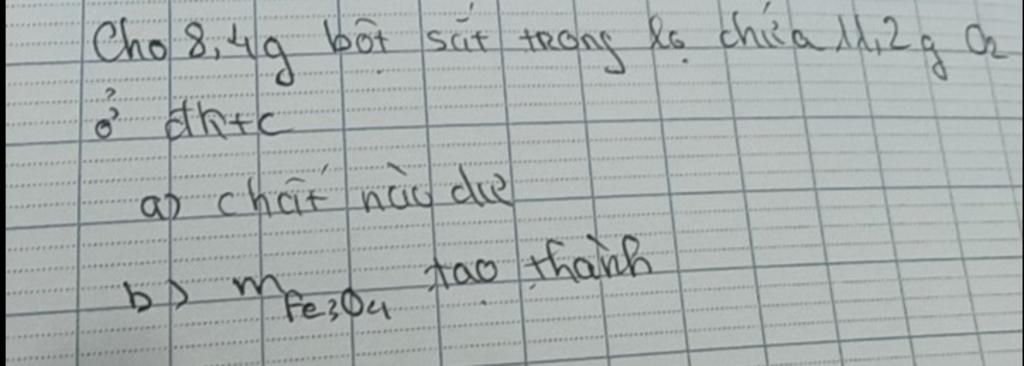 Cho 8,4g bột sắt trong lọ chứa 11,2g O2
ở đktc
a) chất nào dư
b) mFe3O4 tạo thành